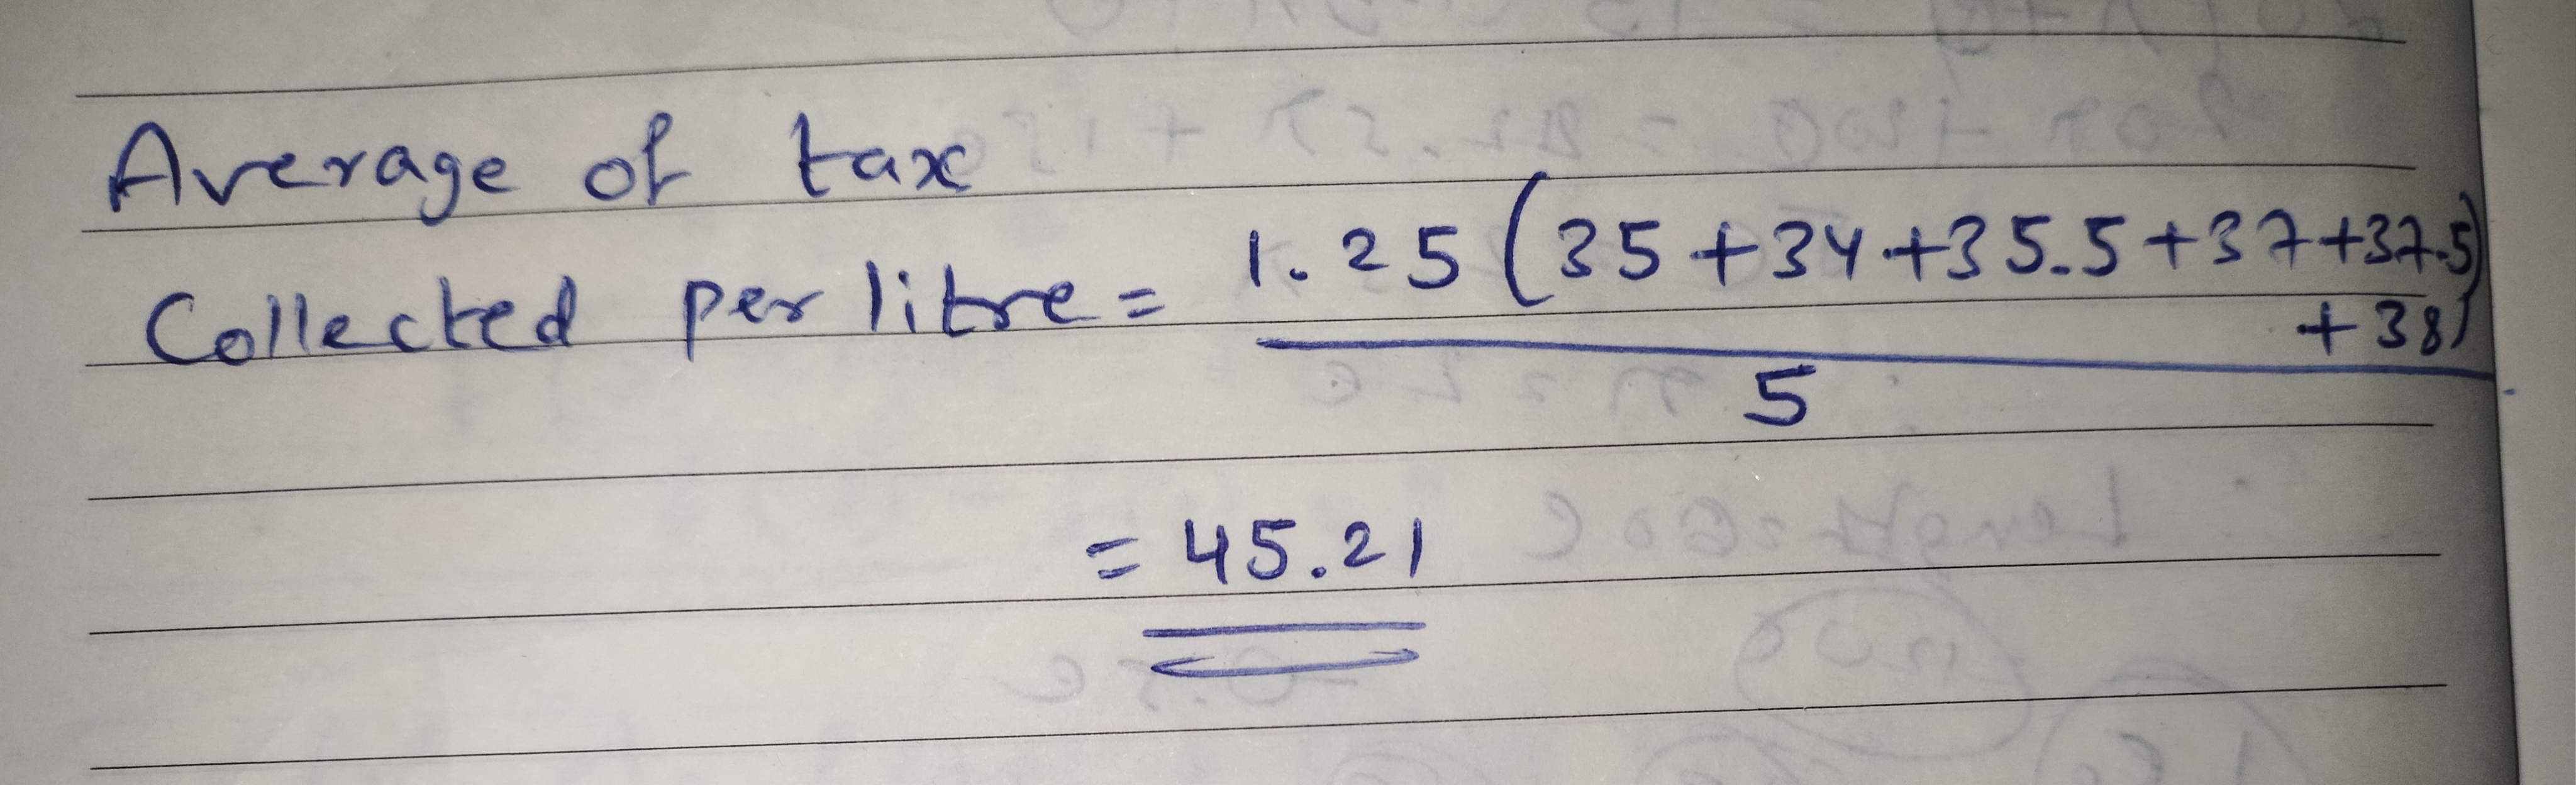 Average of tax
Collected per litre = 1.25 (35+34+35.5+37+37.5)
+38)
5
= 45.21